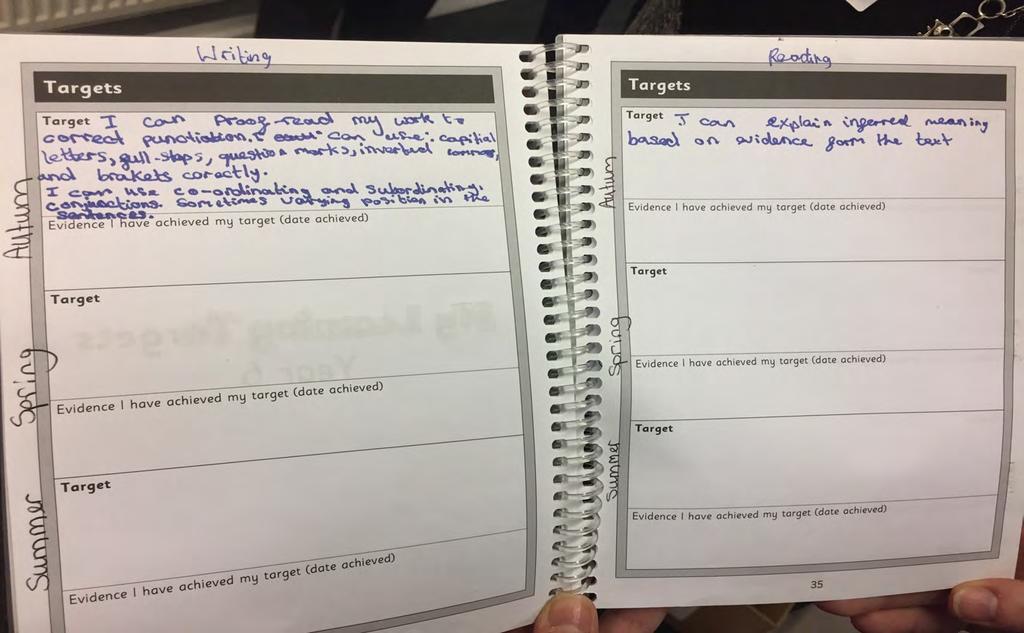 Writing
Targets
Target I can proof-read my work to
correct punctiation. I can use: capital
letters, full-stops, question marks, inverted commas,
and brakets corectly.
I can use co-ordinating and subordinating.
conjunctions. Sometimes varying position in the
sentences.
Autum
Evidence I have achieved my target (date achieved)
Target
Spring
Evidence I have achieved my target (date achieved)
Target
Summer
Evidence I have achieved my target (date achieved)
Reading
Targets
Target I can explain inferred meaning
based on evidence form the text
Autum
Evidence I have achieved my target (date achieved)
Target
Spring
Evidence I have achieved my target (date achieved)
Target
Summer
Evidence I have achieved my target (date achieved)
35
My Learning Targets
Year 6